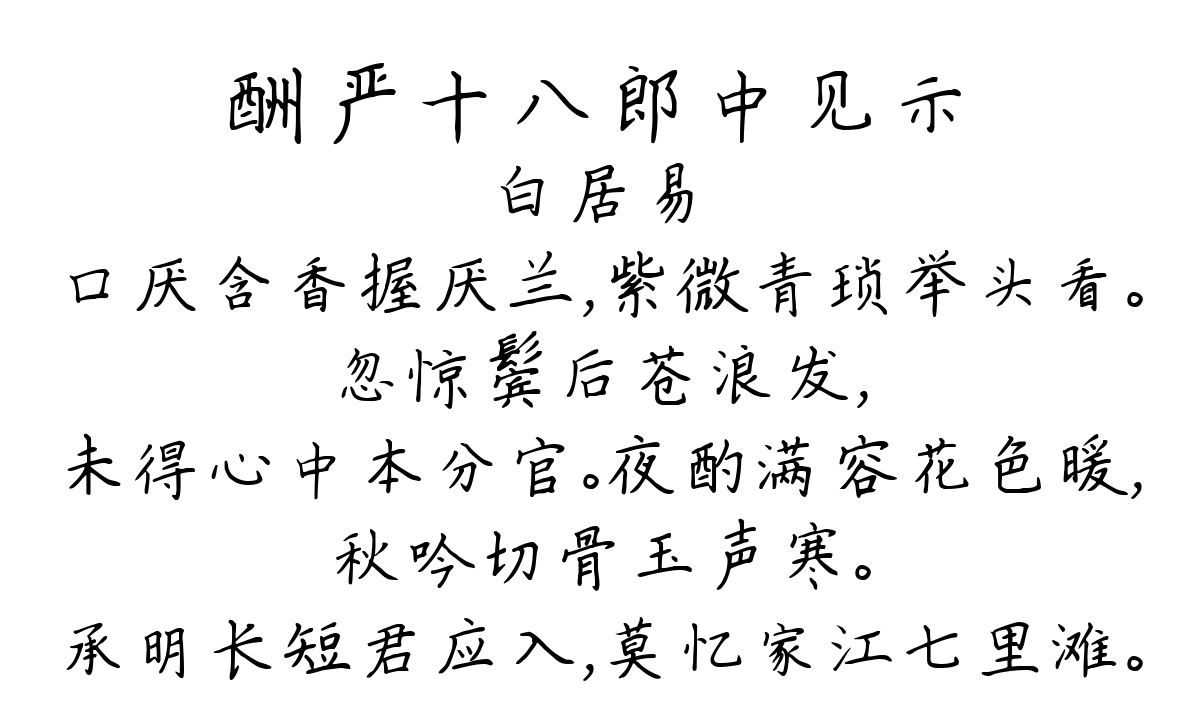 酬严十八郎中见示
白居易
口厌含香握厌兰,紫微青琐举头看。
忽惊鬓后苍浪发,
未得心中本分官。夜酌满容花色暖,
秋吟切骨玉声寒。
承明长短君应入,莫忆家江七里滩。